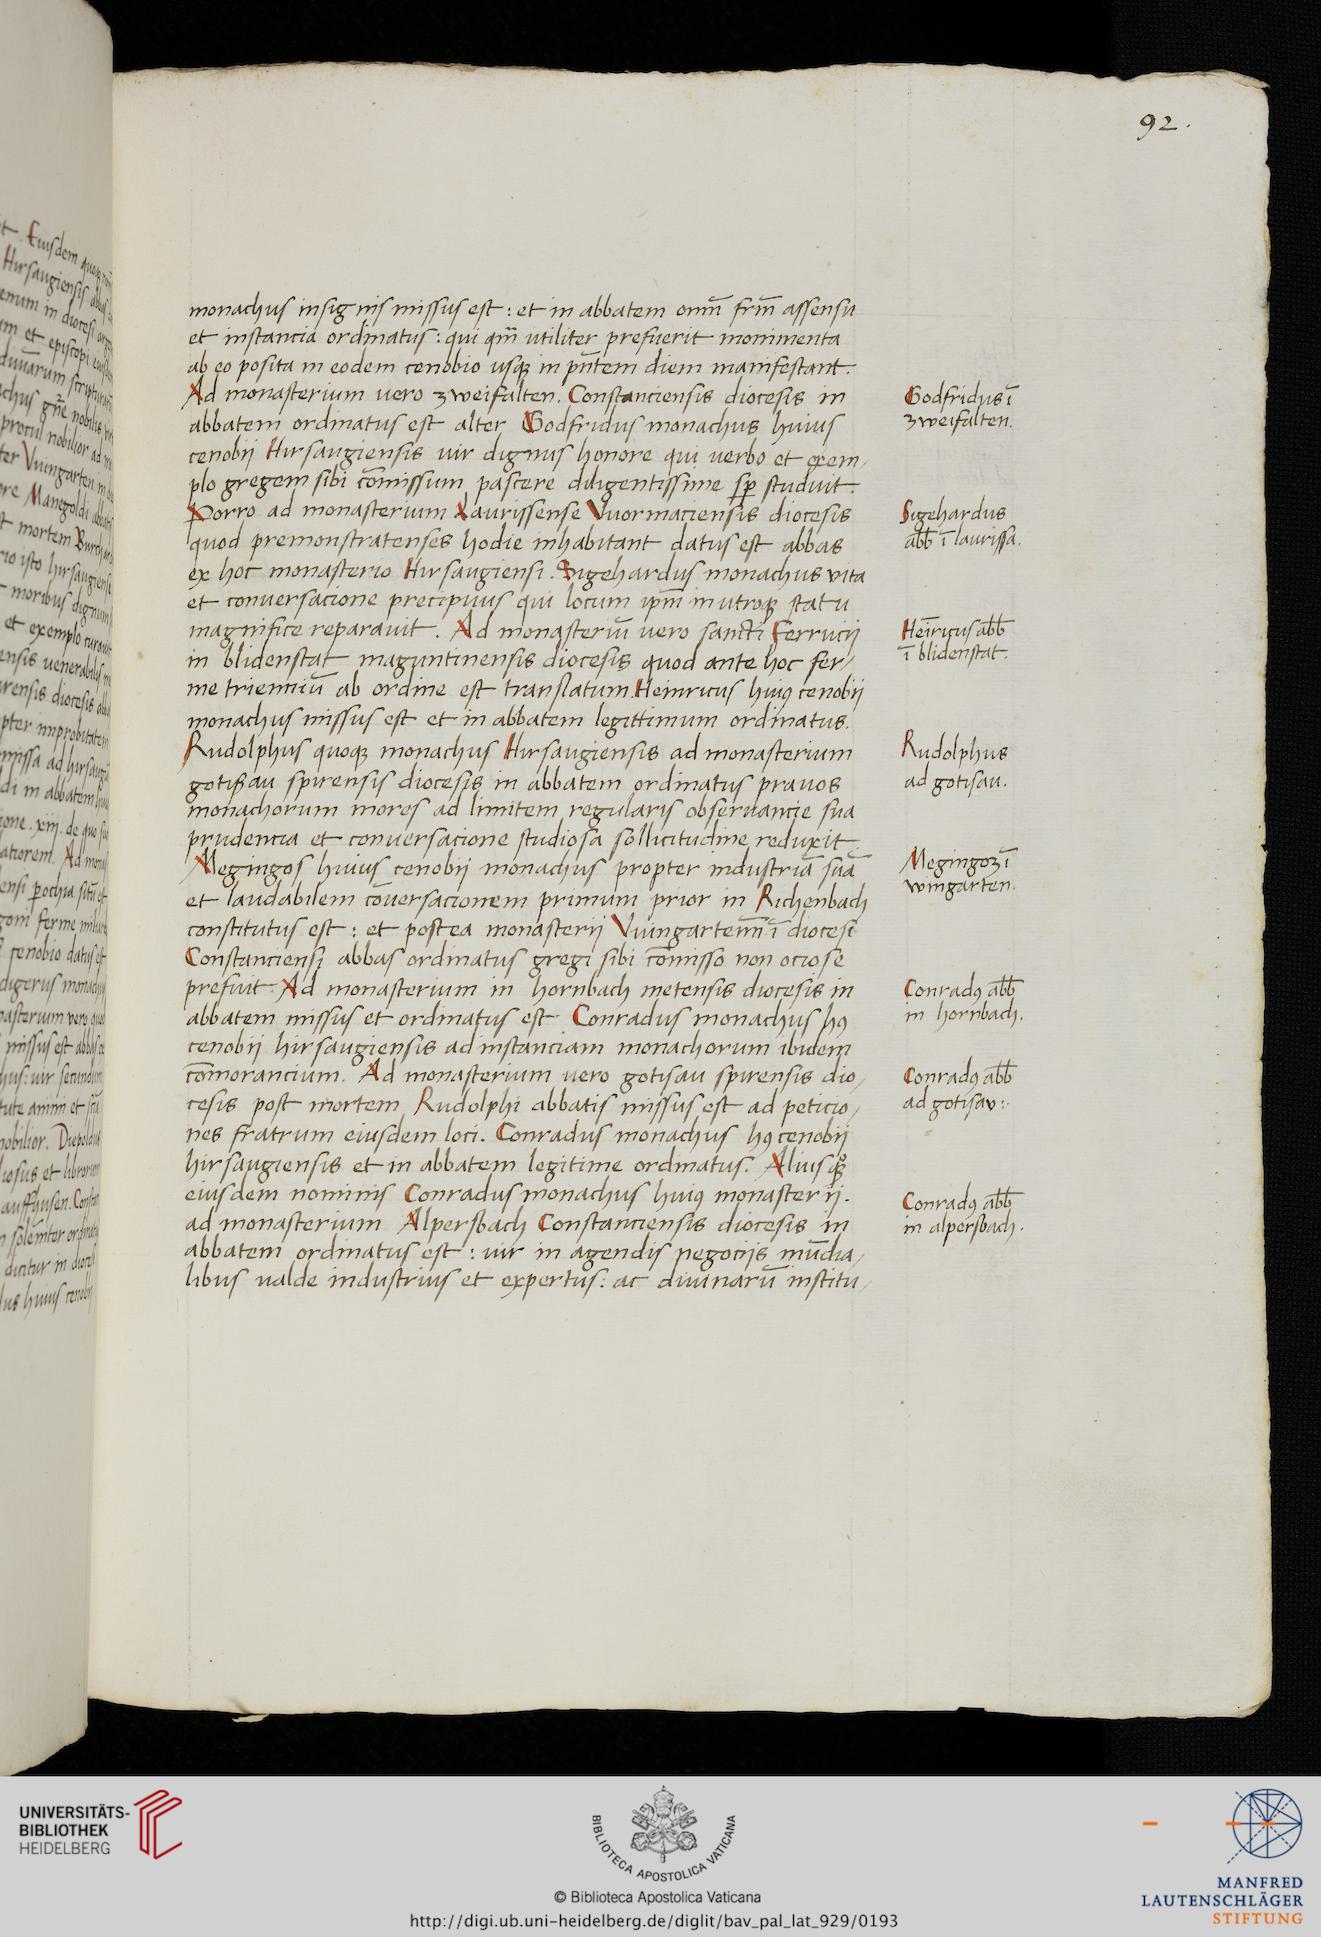 92.
monachus insignis missus est : et in abbatem om̅m̅ frm̅ assensu
et instancia ordinatus : qui qm̅ vtiliter prefuerit monimenta
ab eo posita in eodem cenobio vsqꝫ in pn̅tem diem manifestant.
Ad monasterium vero zweifalten. Constanciensis diocesis in
abbatem ordinatus est alter Godfridus monachus huius
cenobij Hirsaugiensis vir dignus honore qui verbo et exem/
plo gregem sibi co̅missum pascere diligentissime sp̅ studuit.
Porro ad monasterium Laurissense Vuormaciensis diocesis
quod premonstratenses hodie inhabitant datus est abbas
ex hoc monasterio Hirsaugiensi. Sigehardus monachus vita
et conversacione precipuus qui locum ipm̅ in utroqꝫ statu
magnifice reparauit. Ad monasteriu̅ vero sancti Ferrucij
in blidenstat maguntinensis diocesis quod ante hoc fer/
me trienniu̅ ab ordine est translatum. Heinricus huiꝰ cenobij
monachus missus est et in abbatem legittimum ordinatus.
Rudolphus quoqꝫ monachus Hirsaugiensis ad monasterium
gotisau spirensis diocesis in abbatem ordinatus prauos
monachorum mores ad limitem regularis obseruancie sua
prudencia et conversacione studiosa sollicitudine reduxit.
Megingos huius cenobij monachus propter industria̅ sua̅
et laudabilem co̅versacionem primum prior in Richenbach
constitutus est : et postea monasterij Vuingartenn̅ i̅ diocesi
Constanciensi abbas ordinatus gregi sibi co̅misso non ociose
prefuit. Ad monasterium in hornbach metensis diocesis in
abbatem missus et ordinatus est Conradus monachus hꝰ
cenobij hirsaugiensis ad instanciam monachorum ibidem
co̅morancium. Ad monasterium vero gotisau spirensis dio/
cesis post mortem Rudolphi abbatis missus est ad peticio/
nes fratrum eiusdem loci. Conradus monachus hꝰ cenobij
hirsaugiensis et in abbatem legitime ordinatus. Alius qꝫ
eiusdem nominis Conradus monachus huiꝰ monasterij.
ad monasterium Alpersbach Constanciensis diocesis in
abbatem ordinatus est : vir in agendis negocijs mu̅dia/
libus valde industrius et expertus : ac diuinaru̅ institu/
Godfridus i̅
zweifalten.
Sigehardus
abb̅ i̅ laurissa.
Hei̅ricus abb̅
i̅ blidenstat.
Rudolphus
ad gotisau.
Megingoz i̅
wingarten.
Conradꝰ abb̅
in hornbach.
Conradꝰ abb̅
ad gotisav :
Conradꝰ abb̅
in alpersbach.
UNIVERSITÄTS-
BIBLIOTHEK
HEIDELBERG
BIBLIOTECA APOSTOLICA VATICANA
© Biblioteca Apostolica Vaticana
http://digi.ub.uni-heidelberg.de/diglit/bav_pal_lat_929/0193
MANFRED
LAUTENSCHLÄGER
STIFTUNG